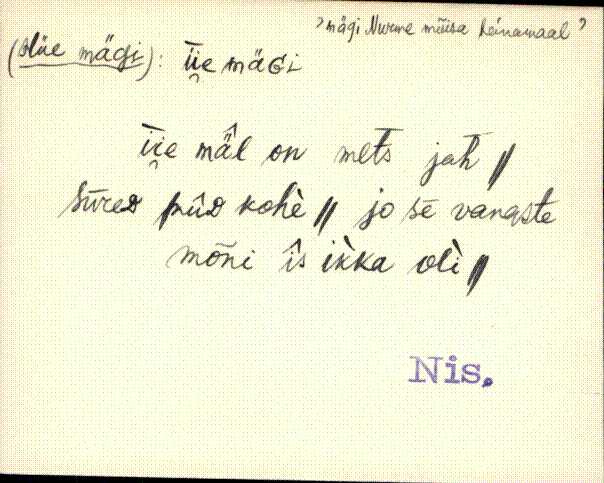 ’mägi Nurme mõisa heinamaal’
(Hüe mägi): ǖ̯e mäGi
ǖ̯e mäl̂ on mets̄ jah̄ //
sūreᴅ pûᴅ kohè // jo sē vanaste
mõni îs ìkka olì //
Nis.